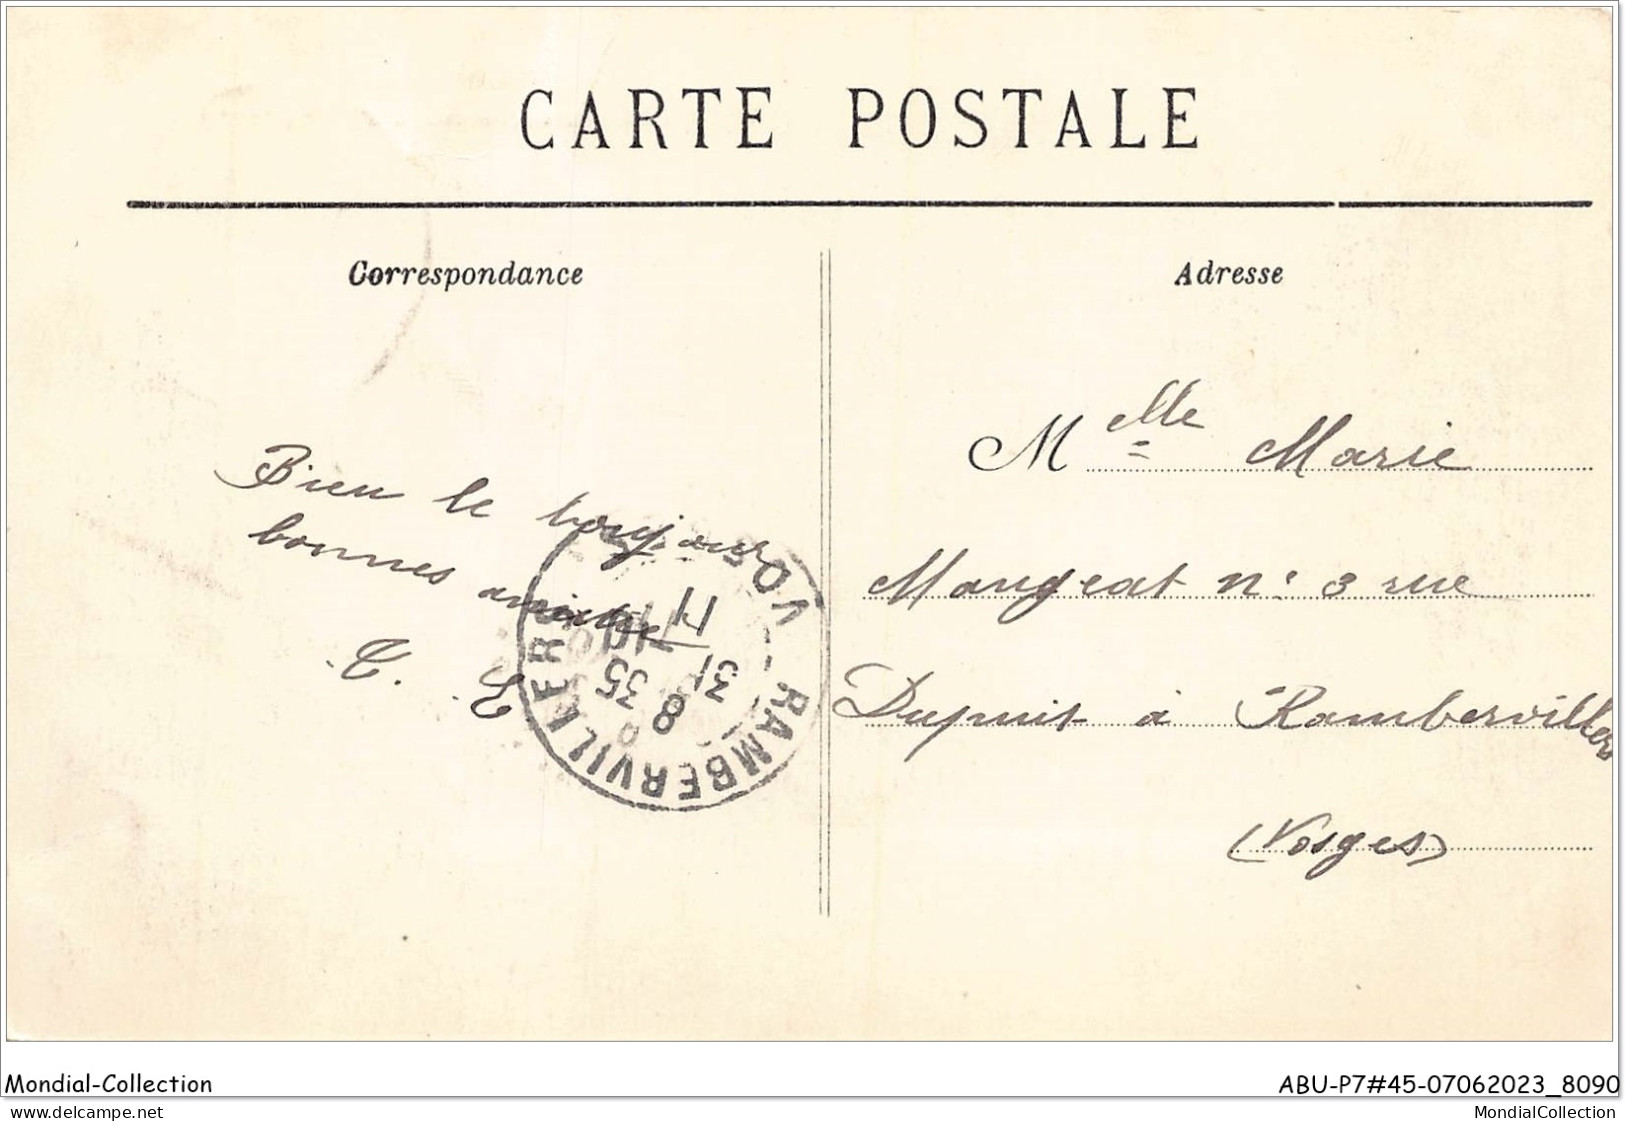 CARTE POSTALE
Correspondance
Adresse
Bien le bonjour
bonnes amitiés
T. E
M elle Marie
Mangeat n: 3 rue
Dupuit à Rambervillers
(Vosges)
RAMBERVILLERS
VOSGES
8 35
31
Mondial-Collection
ABU-P7#45-07062023_8090
www.delcampe.net
MondialCollection